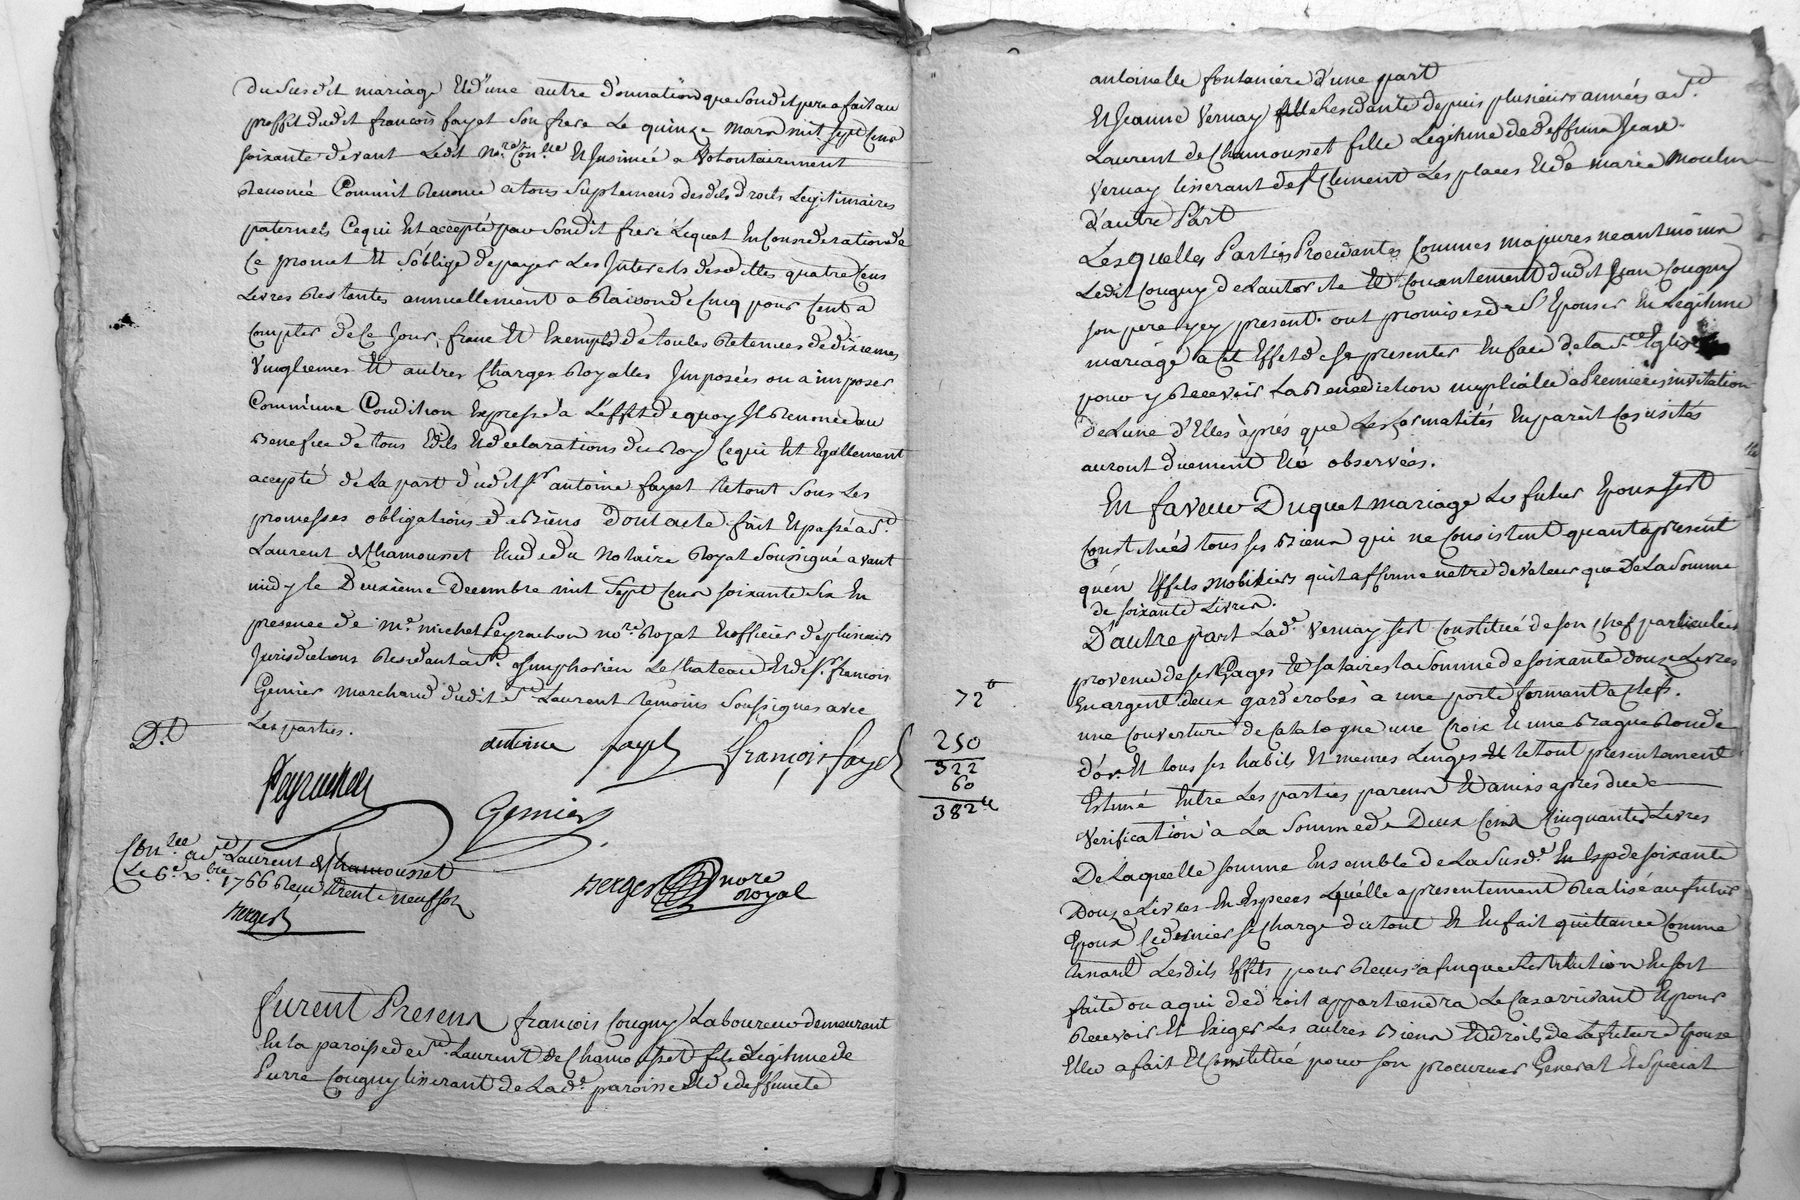 du susdit mariage Et d'une autre donnation que sondit pere a fait au
proffit dudit françois fayet son frere Le quinze Mars mil sept Cens
soixante devant Ledit no.re Con.llé Et Insinuée a volontairement
Renoncé Comm'il Renonce a tous suplemens desdits droits Legitimaires
paternels Ce qui Est accepté par sondit frere Lequel En Consideration de
Ce promet Et s'oblige de payer Les Interets desdittes quatre Cens
Livres Restantes annuellement a Raison de Cinq pour Cent a
Compter de Ce Jour, franc Et Exempts de toutes Retenues de dixiemes
Vingtiemes Et autres Charges Royalles Imposées ou a imposer
Comm'une Condition Expresse a L'effet de quoy Il Renonce au
Benefice de tous Edits Et declarations du Roy Ce qui Est Egallement
accepté de La part dudit S.r antoine fayet Le tout sous Les
promesses obligations de Biens dont acte fait Et passé a S.t
Laurent de Chamousset Etude du Notaire Royal soussigné avant
midy le Deuxième Decembre mil sept Cens soixante six En
presence de m.e michel Peyrachon no.re Royal Et officier de plusieurs
Jurisdictions Residant a S.t Simphorien Le Chateau Et de S.r françois
Gernier marchand dudit S.t Laurent temoins soussignes avec
Les parties.
D.d
antoine fayet françois fayet
Peyrachon
Gernier
Con.llé a S.t Laurent de Chamousset
Le 6.e x.bre 1766 Reçu trente neuf sols
Berger
Berger nore Royal
furent Presens françois Cougny Laboureur demeurant
En la paroisse de S.t Laurent de Chamousset fils Legitime de
Pierre Cougny tisserant de Lad.e paroisse Et de deffuncte
antoinette fontaniere d'une part
Et Jeanne Vernay fille Residante depuis plusieurs années a S.t
Laurent de Chamousset fille Legitime de deffunt Jean
Vernay tisserant de S.t Clement Les places Et de marie moulin
d'autre Part
Lesquelles Parties Procedantes Commes majeures neantmoins
Ledit Cougny de L'autorité Et Consentement dudit Jean Cougny
son pere y cy present. ont promises de S'Epouser En Legitime
mariage a cet Effet de se presenter En face de la S.te Eglise
pour y Recevoir La Benediction nuptialle a Premieres invitation
de L'une d'Elles àprés que Les formalités En pareil Cas usités
auront duement Eté observées.
En faveur Duquel mariage Le futur Epoux s'est
Constitués tous ses Biens qui ne Consistent quant a present
qu'en Effets mobiliers qu'il affirme n'etre de valeur que De La somme
de soixante Livres.
D'autre part Lad.e Vernay s'est Constituée de son Chef particulier
provenu de ses Gages Et salaires la somme de soixante douze Livres
En argent. deux garderobes à une porte fermant a Clefs.
72 ᵗᵗ
une Couverture de Catalogne une Croix Et une Bague Ronde
250
d'or. Et tous ses habits Et menues Linges Le tout presentement
322
60
Estimé Entre Les parties parens Et amis apres due
382 ᵗᵗ
Verification à La somme de Deux Cens Cinquante Livres
De Laquelle somme Ensemble de La susd.e En Esp de soixante
Douze Livres En Especes qu'elle a presentement Realisé au futur
Epoux Ce dernier se charge du tout Et En fait quittance Comme
tenant Lesdits Effets pour Reçus a fin que Restitution En soit
faite ou a qui de droit appartiendra Le Cas arrivant Et pour
Recevoir Et Exiger Les autres Biens Et droits de La future Epouse
Elle a fait Et Constitué pour son procureur General Et special